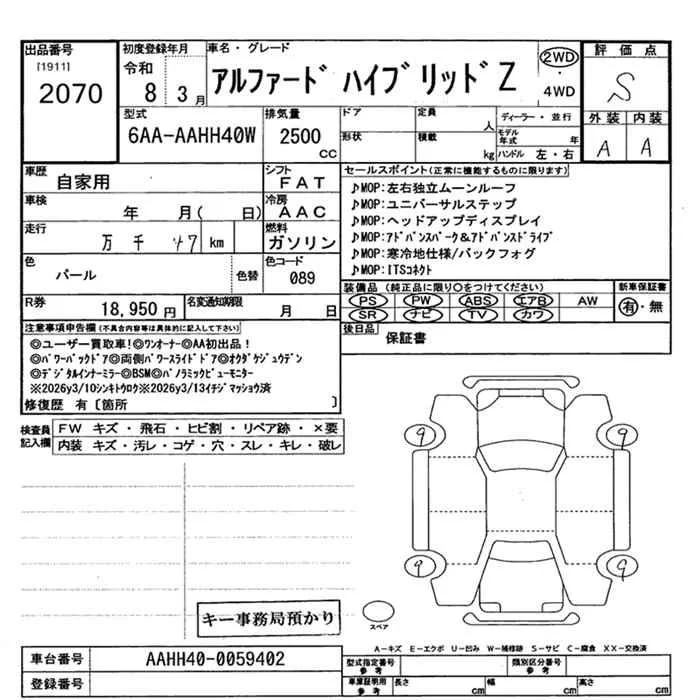 出品番号
[1911]
2070
初度登録年月
令和
8 3月
車名・グレード
アルファード ハイブリッドZ
2WD
・
4WD
評価点
S
外装 内装
A A
型式
6AA-AAHH40W
排気量
2500
CC
ドア
形状
定員
人
積載
kg
ディーラー・並行
モデル年式
年
ハンドル 左・右
車歴
自家用
シフト
FAT
車検
年 月( 日)
冷房
AAC
走行
万 千 km
燃料
ガソリン
色
パール
色替
色コード
089
R券
18,950円
名変通知期限
月 日
セールスポイント(正常に機能するものに限ります)
♪MOP:左右独立ムーンルーフ
♪MOP:ユニバーサルステップ
♪MOP:ヘッドアップディスプレイ
♪MOP:アドバンスパーク&アドバンスドライブ
♪MOP:寒冷地仕様/バックフォグ
♪MOP:ITSコネクト
装備品 (純正品に限り○をつけてください)
PS PW ABS エアB AW
SR ナビ TV カワ
新車保証書
有・無
後日品
保証書
注意事項申告欄(不具合内容等は具体的に記入して下さい)
◎ユーザー買取車!◎ワンオーナー◎AA初出品!
◎パワーバックドア◎両側パワースライドドア◎オクダケジュウデン
◎デジタルインナーミラー◎BSM◎パノラミックビューモニター
※2026y3/10シンキトウロク※2026y3/13イチジマッショウ済
修復歴 有〔箇所 〕
検査員記入欄
FW キズ・飛石・ヒビ割・リペア跡・×要
内装 キズ・汚レ・コゲ・穴・スレ・キレ・破レ
9 9
9 9
キー事務局預かり
スペア
A-キズ E-エクボ U-凹み W-補修跡 S-サビ C-腐食 XX-交換済
車台番号
AAHH40-0059402
登録番号
型式指定番号
参考
類別区分番号
参考
車庫証明用
参考
長さ
cm
幅
cm
高さ
cm